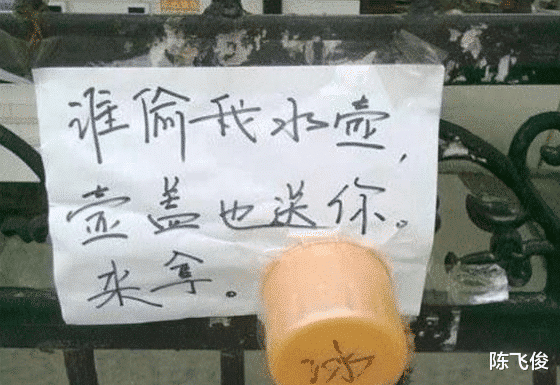 谁偷我水壶，
壶盖也送你。
来拿。
陈飞俊